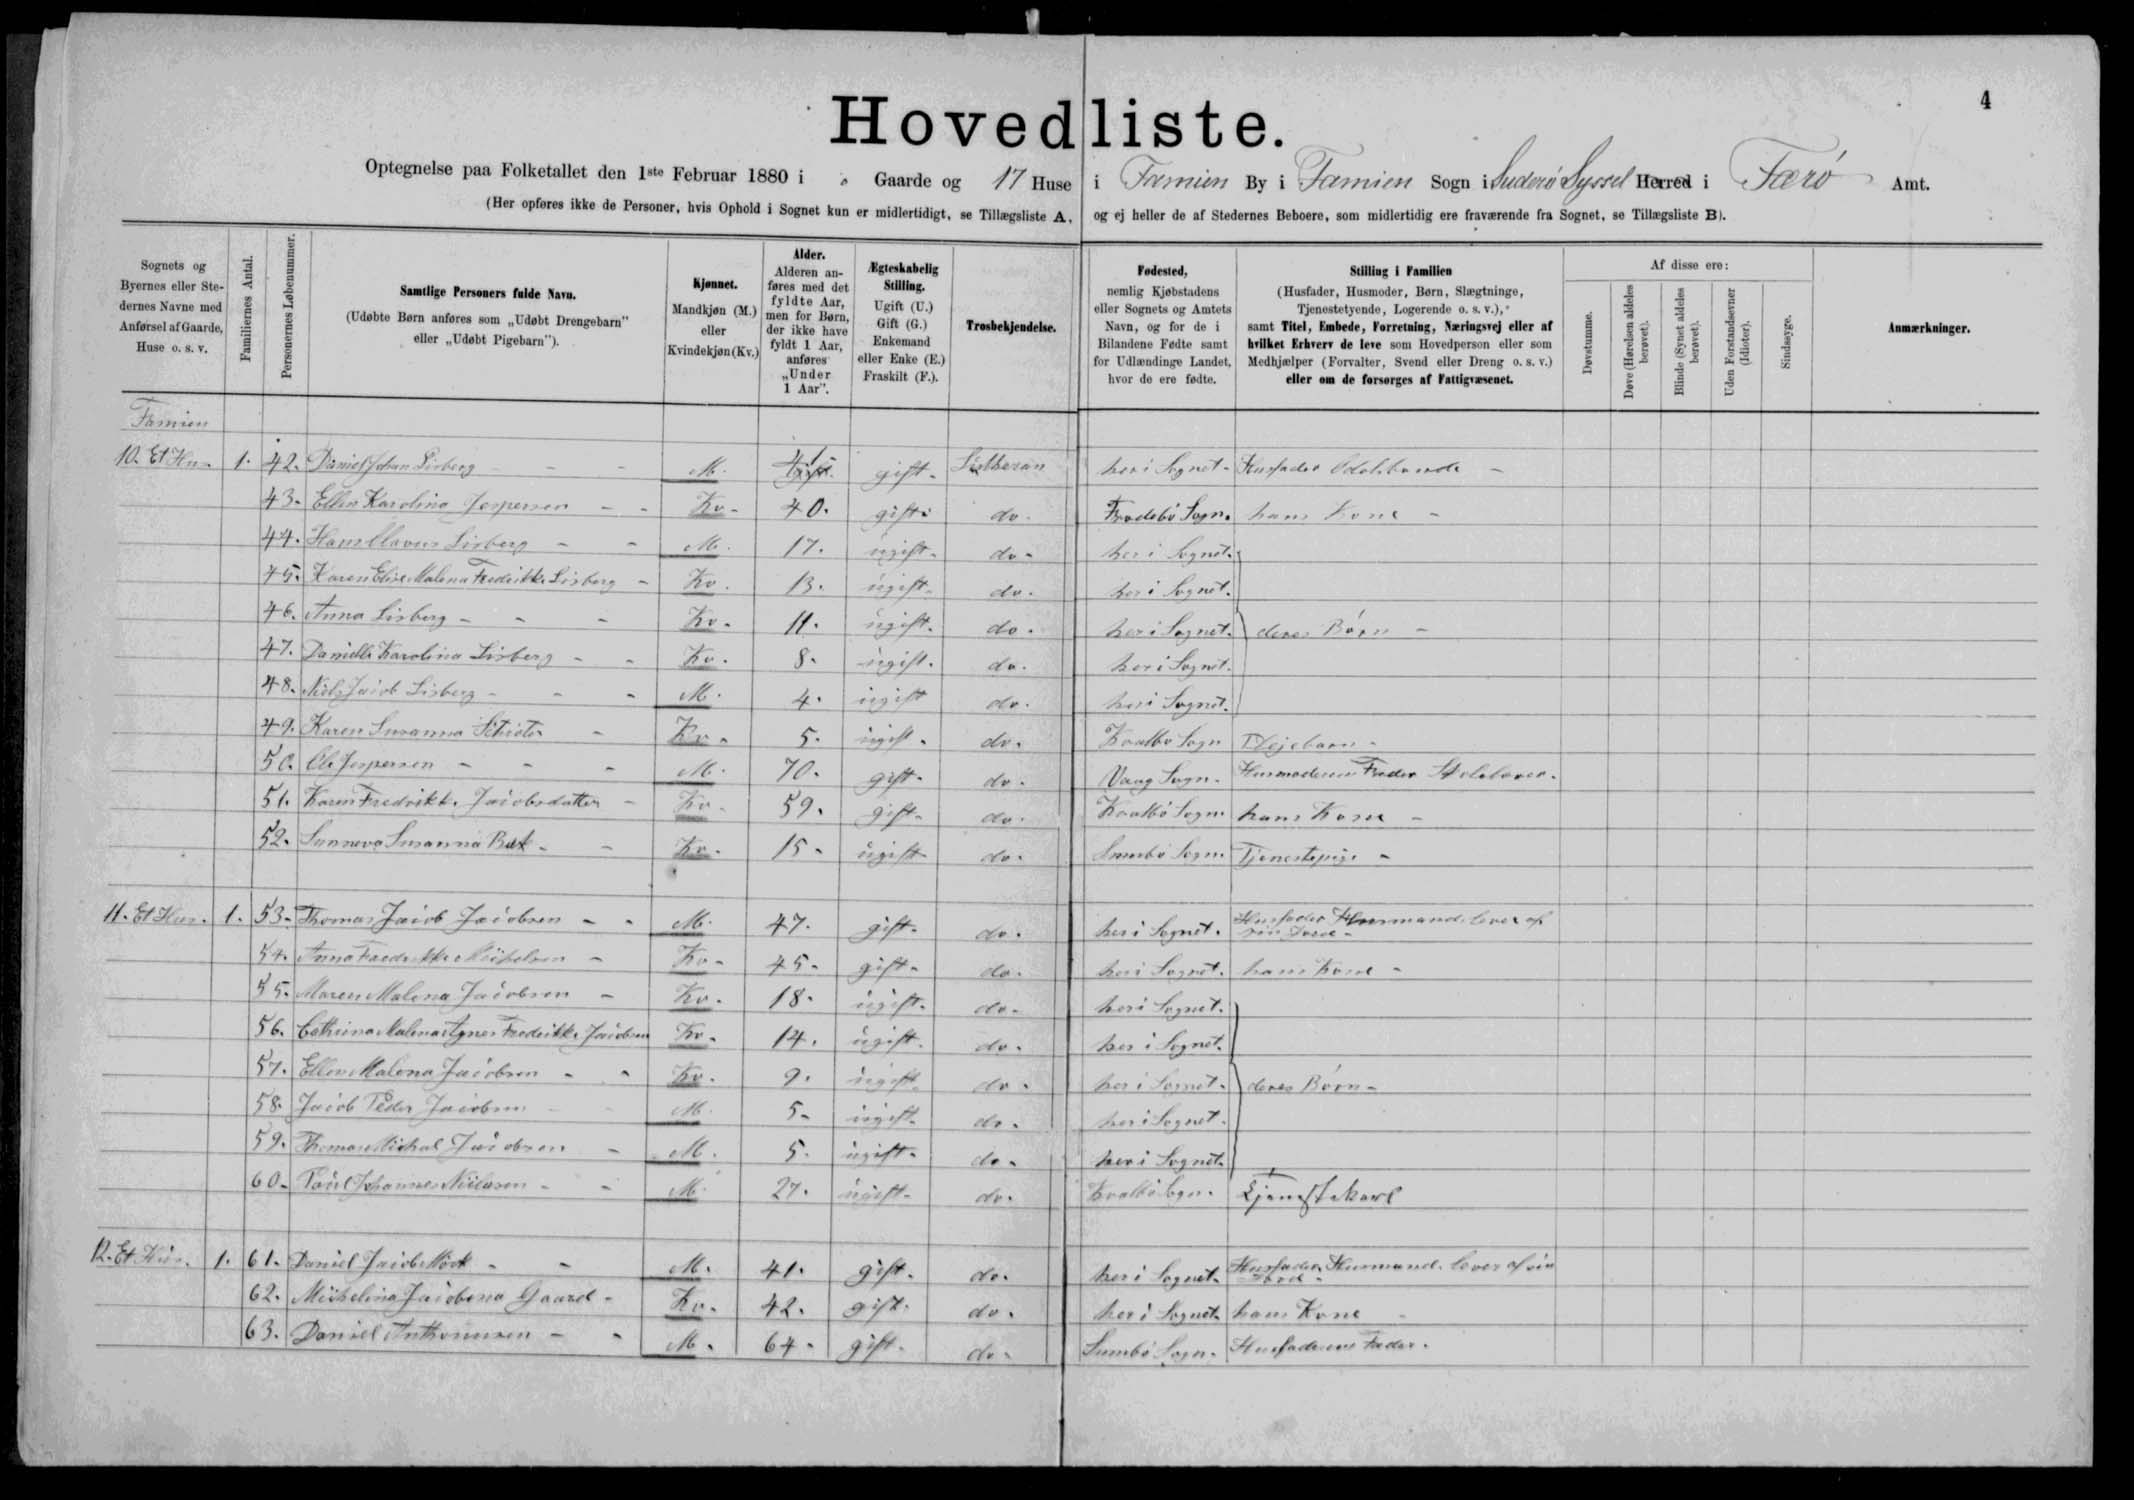 4
Hovedliste.
Optegnelse paa Folketallet den 1ste Februar 1880 i Gaarde og 17 Huse i Famien By i Famien Sogn i Suderø Syssel Herred i Færø Amt.
(Her opføres ikke de Personer, hvis Ophold i Sognet kun er midlertidigt, se Tillægsliste A, og ej heller de af Stedernes Beboere, som midlertidig ere fraværende fra Sognet, se Tillægsliste B).
Sognets og Byernes eller Stedernes Navne med Anførsel af Gaarde, Huse o. s. v.
Familiernes Antal.
Personernes Løbenummer.
Samtlige Personers fulde Navn.
(Udøbte Børn anføres som „Udøbt Drengebarn" eller „Udøbt Pigebarn").
Kjønnet.
Mandkjøn (M.) eller Kvindekjøn (Kv.)
Alder.
Alderen anføres med det fyldte Aar, men for Børn, der ikke have fyldt 1 Aar, anføres „Under 1 Aar".
Ægteskabelig Stilling.
Ugift (U.) Gift (G.) Enkemand eller Enke (E.) Fraskilt (F.).
Trosbekjendelse.
Fødested,
nemlig Kjøbstadens eller Sognets og Amtets Navn, og for de i Bilandene Fødte samt for Udlændinge Landet, hvor de ere fødte.
Stilling i Familien
(Husfader, Husmoder, Børn, Slægtninge, Tjenestetyende, Logerende o. s. v.),
samt Titel, Embede, Forretning, Næringsvej eller af hvilket Erhverv de leve som Hovedperson eller som Medhjælper (Forvalter, Svend eller Dreng o. s. v.) eller om de forsørges af Fattigvæsenet.
Af disse ere:
Døvstumme.
Døve (Hørelsen aldeles berøvet).
Blinde (Synet aldeles berøvet).
Uden Forstandsevner (Idioter).
Sindssyge.
Anmærkninger.
Famien
10. Et Hus 1. 42. Daniel Johan Lisberg M. 45 gift Lutheran her i Sognet Husfader Odelsbonde
43. Ellen Karolina Jespersen Kv. 40. gift do. Frodebø Sogn. hans Kone
44. Hans Clavus Lisberg M. 17. ugift. do. her i Sognet.
45. Karen Elise Malena Fredrikke Lisberg Kv. 13. ugift. do. her i Sognet.
46. Anna Lisberg Kv. 11. ugift. do. her i Sognet. deres Børn
47. Danielle Karolina Lisberg Kv. 8. ugift. do. her i Sognet.
48. Niels Jacob Lisberg M. 4. ugift do. her i Sognet.
49. Karen Susanna Kv. 5. ugift. do. Kvalbø Sogn Plejebarn
50. Ole Jespersen M. 70. gift. do. Vaag Sogn. Husmoderens Fader
51. Karen Fredrikke Jacobsdatter Kv. 59. gift. do. Kvalbø Sogn hans Kone
52. Sunneva Susanna Bæk Kv. 15. ugift do. Sumbø Sogn. Tjenestepige
11. Et Hus. 1. 53. Thomas Jacob Jacobsen M. 47. gift. do. her i Sognet. Husfader Husmand. lever af
sin Jord
54. Anna Fredrikke Michelsen Kv. 45. gift. do. her i Sognet. hans Kone
55. Maren Malena Jacobsen Kv. 18. ugift. do. her i Sognet.
56. Cathrina Malena Agnes Fredrikke Jacobsen Kv. 14. ugift. do. her i Sognet.
57. Ellen Malena Jacobsen Kv. 9. ugift do. her i Sognet. deres Børn
58. Jacob Peder Jacobsen M. 5. ugift. do. her i Sognet.
59. Thomas Michal Jacobsen M. 5. ugift. do. her i Sognet.
60. Poul Johannes Nielsen M. 27. ugift. do. Kvalbø Sogn. Tjenestekarl
12. Et Hus. 1. 61. Daniel Jacob Mørk M. 41. gift. do. her i Sognet. Husfader Husmand. lever af sin
Jord
62. Michelina Jacobina Gaard Kv. 42. gift. do. her i Sognet. hans Kone
63. Daniel Anthonisen M. 64. gift. do. Sumbø Sogn. Husfaderens Fader.